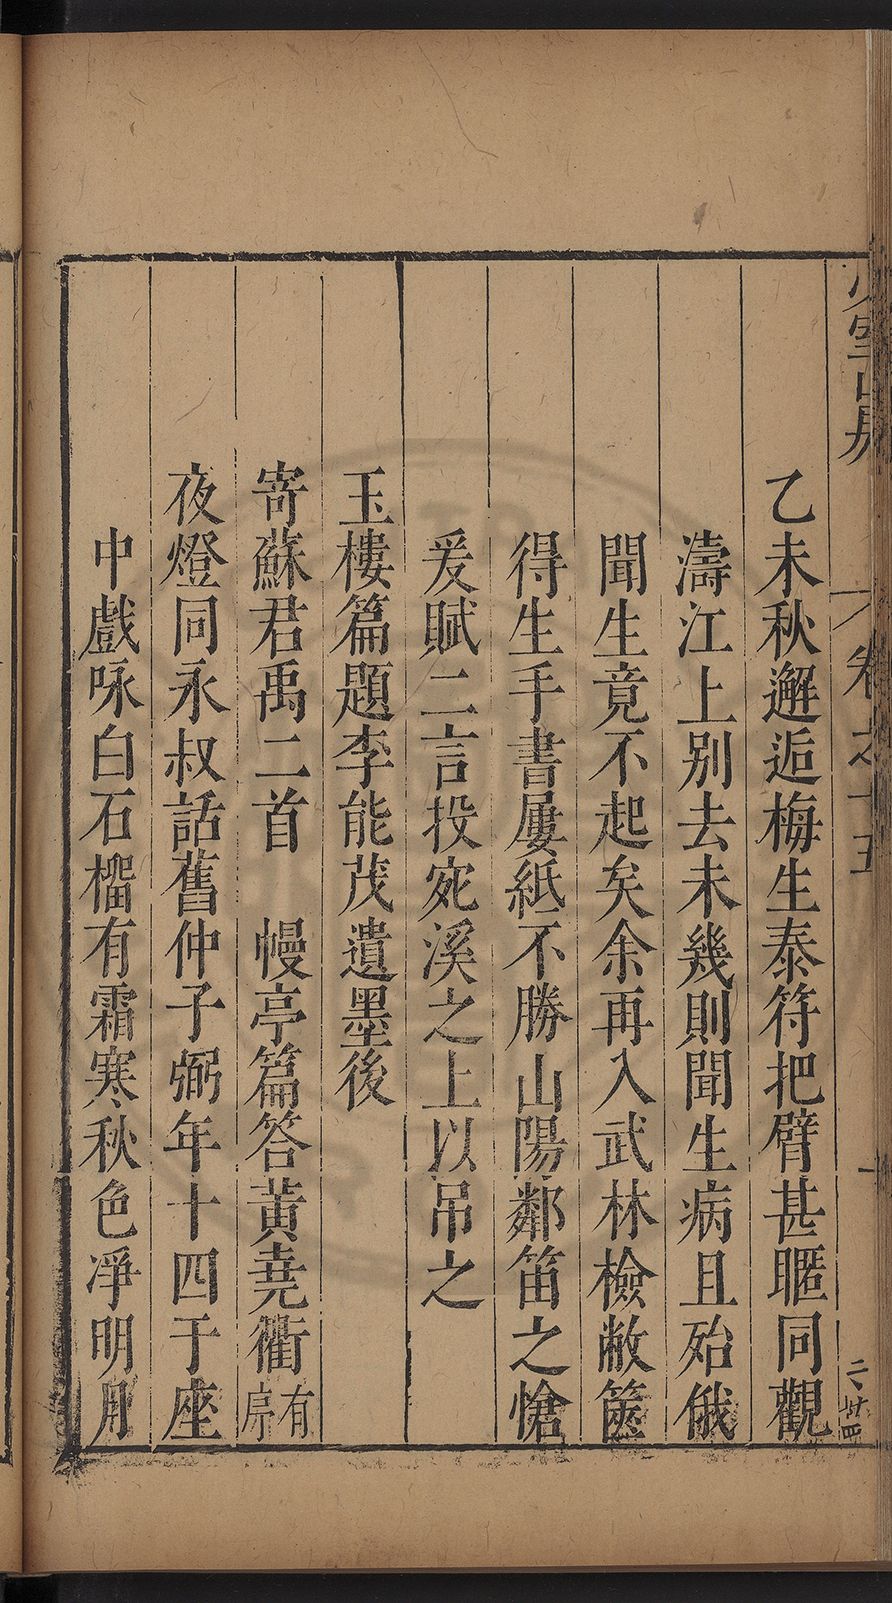 乙未秋邂逅梅生泰符把臂甚暱同觀
濤江上別去未幾則聞生病且殆俄
聞生竟不起矣余再入武林檢敝篋
得生手書屢紙不勝山陽鄰笛之愴
爰賦二言投宛溪之上以吊之
玉樓篇題李能茂遺墨後
寄蘇君禹二首　幔亭篇答黃堯衢有序
夜燈同永叔話舊仲子弼年十四于座
中戲咏白石榴有霜寒秋色凈明月
卷之十五